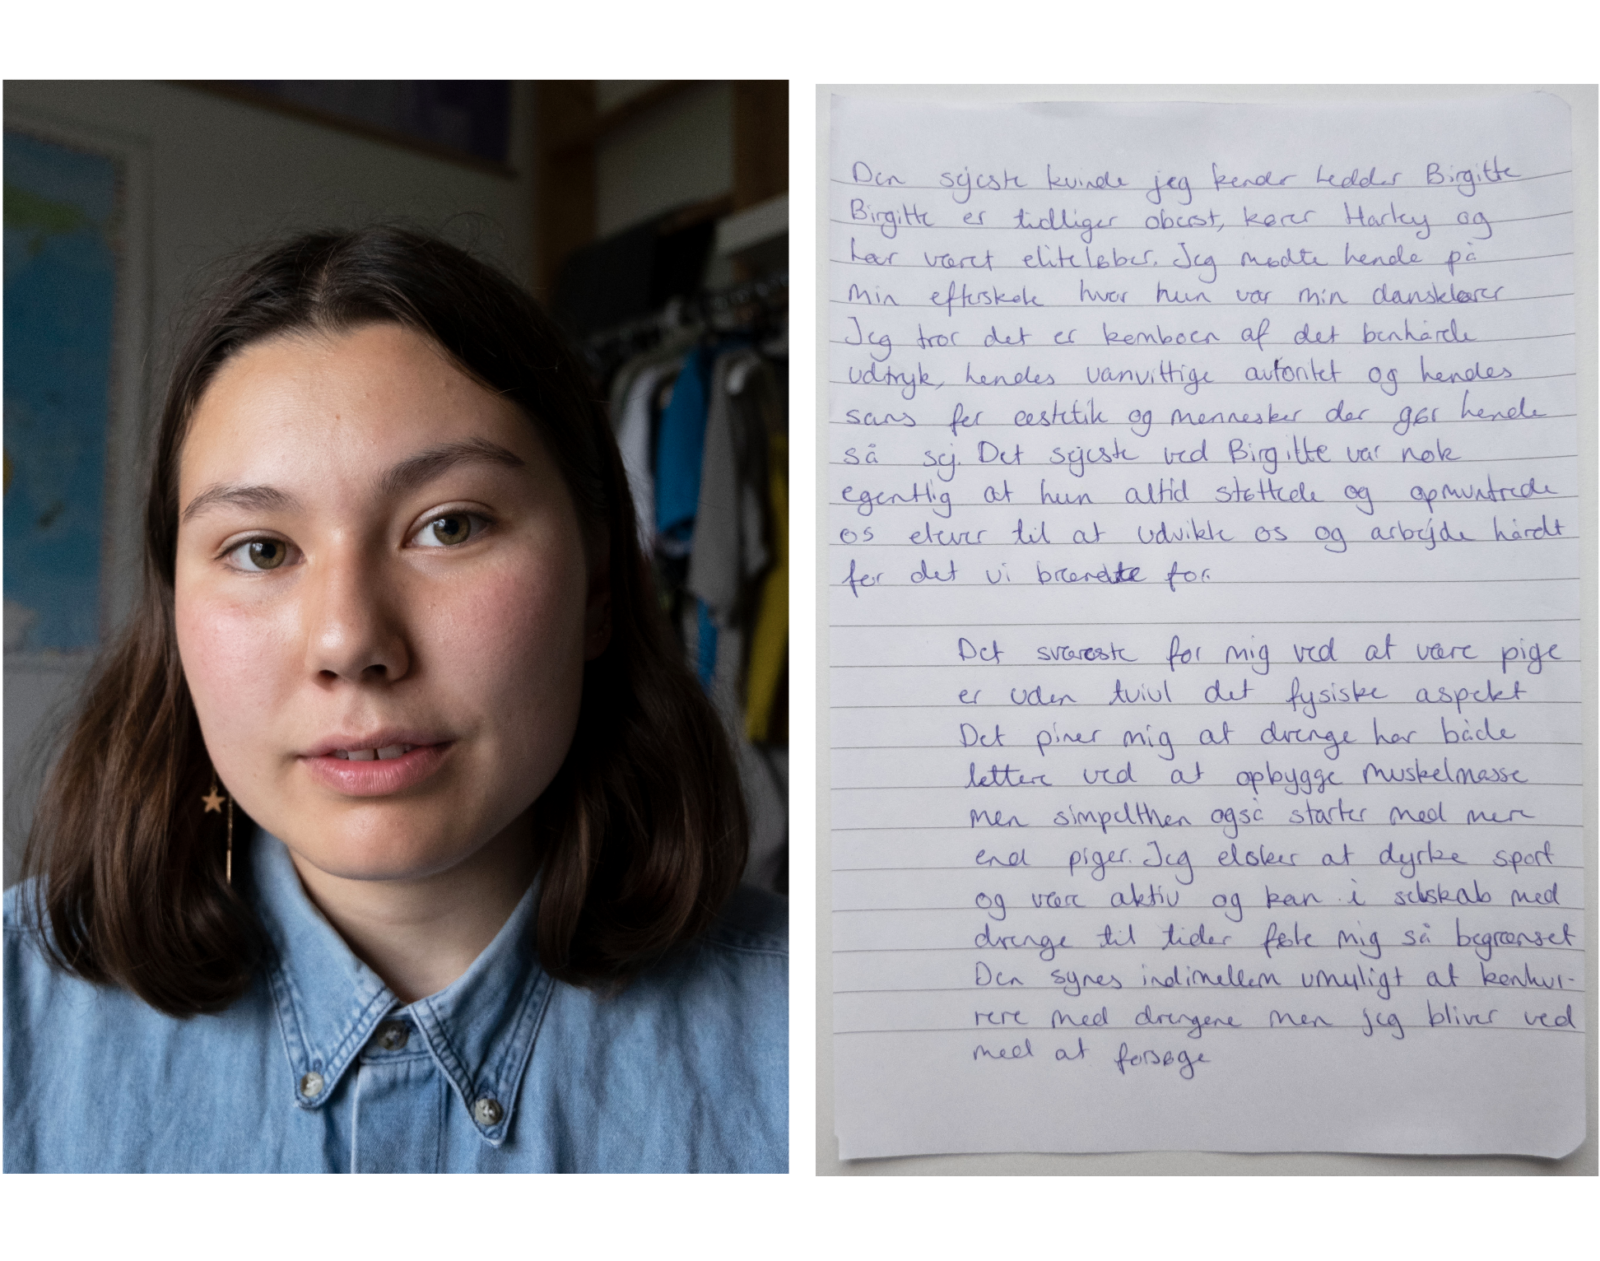 Den sejeste kvinde jeg kender hedder Birgitte
Birgitte er tidlliger oberst, kører Harley og
har været eliteløber. Jeg mødte hende på
min efterskole hvor hun var min dansklærer
Jeg tror det er komboen af det benhårde
udtryk, hendes vanvittige autoritet og hendes
sans for æstetik og mennesker der gør hende
så sej. Det sejeste ved Birgitte var nok
egentlig at hun altid støttede og opmuntrede
os elever til at udvikle os og arbejde hårdt
for det vi brændte for.
Det sværeste for mig ved at være pige
er uden tvivl det fysiske aspekt
Det piner mig at drenge har både
lettere ved at opbygge muskelmasse
men simpelthen også starter med mere
end piger. Jeg elsker at dyrke sport
og være aktiv og kan i selskab med
drenge til tider føle mig så begrænset
Den synes indimellem umuligt at konkur-
rere med drengene men jeg bliver ved
med at forsøge